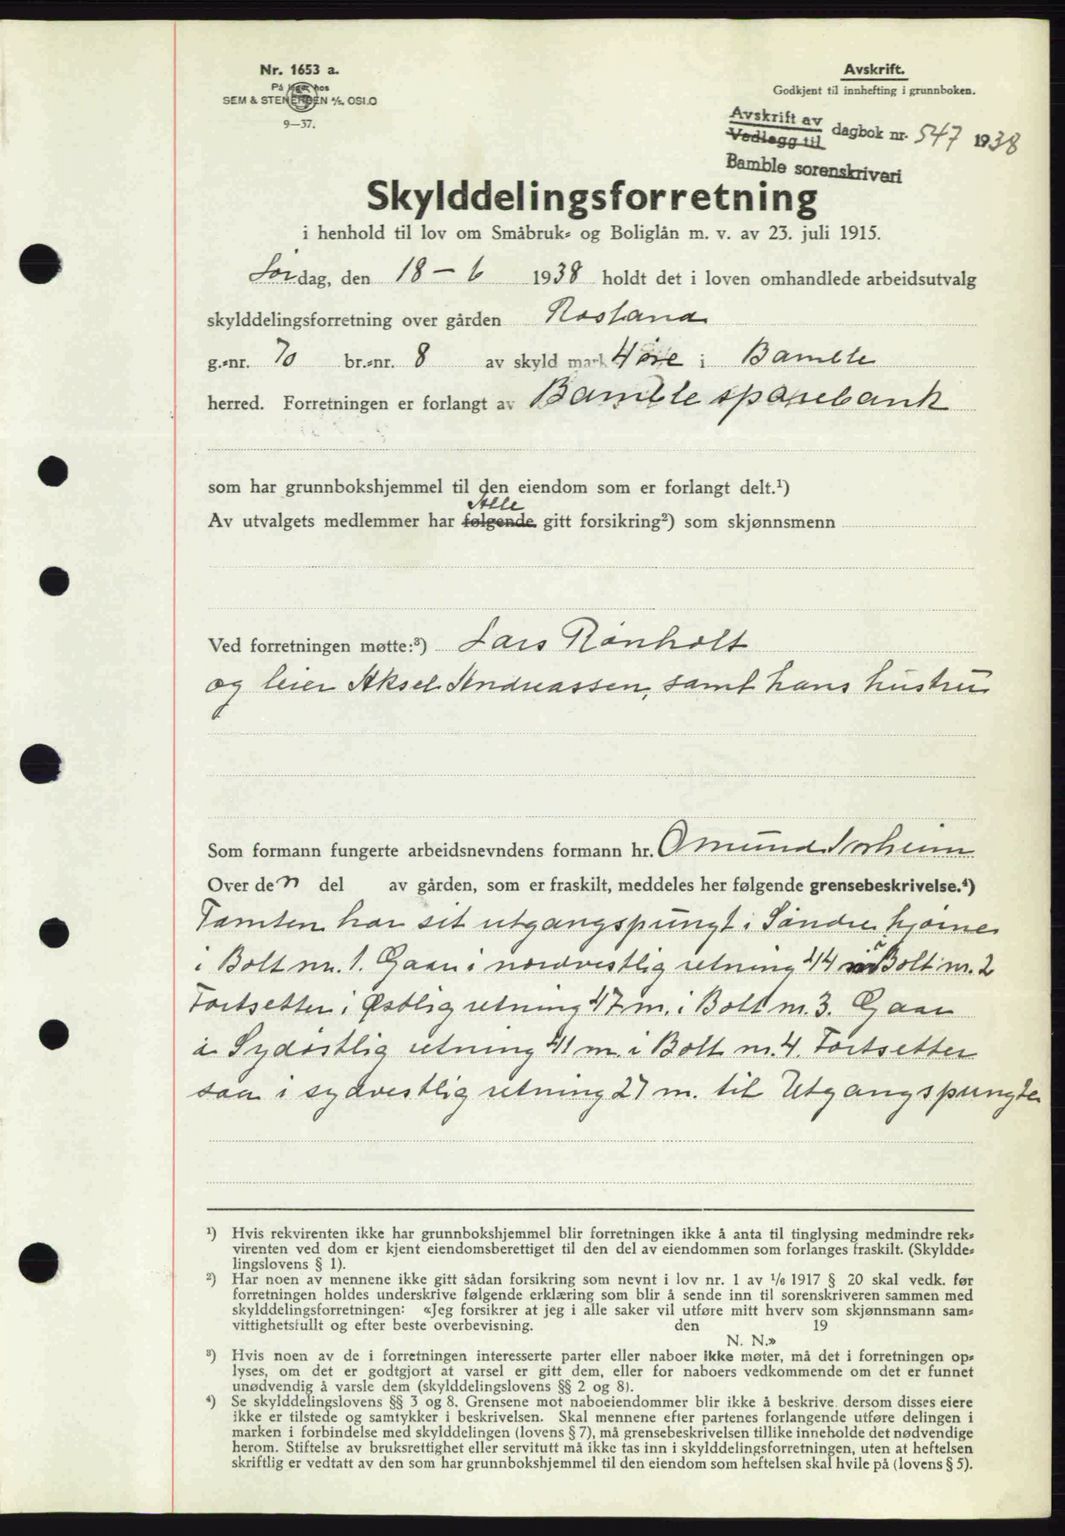 Nr. 1653 a.
På lager hos
SEM & STENERSEN A/S, OSLO
9—37.
Avskrift.
Godkjent til innhefting i grunnboken.
Avskrift av
Vedlegg til
dagbok nr. 547 1938
Bamble sorenskriveri
Skylddelingsforretning
i henhold til lov om Småbruk- og Boliglån m. v. av 23. juli 1915.
Lørdag, den 18 – 6 1938 holdt det i loven omhandlede arbeidsutvalg
skylddelingsforretning over gården Rosland
g.-nr. 70 br.-nr. 8 av skyld mark 4 øre i Bamble
herred. Forretningen er forlangt av Bamble sparebank
som har grunnbokshjemmel til den eiendom som er forlangt delt.¹)
Alle
Av utvalgets medlemmer har følgende gitt forsikring²) som skjønnsmenn
Ved forretningen møtte:³) Lars Rønholt
og leier Aksel Andreassen, samt hans hustru
Som formann fungerte arbeidsnevndens formann hr. Omund
Over den del av gården, som er fraskilt, meddeles her følgende grensebeskrivelse.⁴)
Tomten har sit utgangspungt i Søndre hjørne
i Bolt nr. 1. Gaar i nordvestlig retning 44 m i Bolt nr. 2
Fortsetter i Østlig retning 47 m. i Bolt nr. 3. Gaar
i Sydøstlig retning 41 m. i Bolt nr. 4. Fortsetter
saa i sydvestlig retning 27 m. til Utgangspungte
¹) Hvis rekvirenten ikke har grunnbokshjemmel blir forretningen ikke å anta til tinglysing medmindre rek-
virenten ved dom er kjent eiendomsberettiget til den del av eiendommen som forlanges fraskilt. (Skyldde-
lingslovens § 1).
²) Har noen av mennene ikke gitt sådan forsikring som nevnt i lov nr. 1 av 1/6 1917 § 20 skal vedk. før
forretningen holdes underskrive følgende erklæring som blir å sende inn til sorenskriveren sammen med
skylddelingsforretningen: «Jeg forsikrer at jeg i alle saker vil utføre mitt hverv som skjønnsmann sam-
vittighetsfullt og efter beste overbevisning. den 19
N. N.»
³) Hvis noen av de i forretningen interesserte parter eller naboer ikke møter, må det i forretningen op-
lyses, om det er godtgjort at varsel er gitt dem, eller for naboers vedkommende om det er funnet
unødvendig å varsle dem (skylddelingslovens §§ 2 og 8).
⁴) Se skylddelingslovens §§ 3 og 8. Grensene mot naboeiendommer blir ikke å beskrive, dersom disses eiere
ikke er tilstede og samtykker i beskrivelsen. Skal mennene efter partenes forlangende utføre delingen i
marken i forbindelse med skylddelingen (lovens § 7), må grensebeskrivelsen tillike inneholde det nødvendige
herom. Stiftelse av bruksrettighet eller servitutt må ikke tas inn i skylddelingsforretningen, uten at heftelsen
skriftlig er vedtatt av den som har grunnbokshjemmel til den eiendom som heftelsen skal hvile på (lovens § 5).